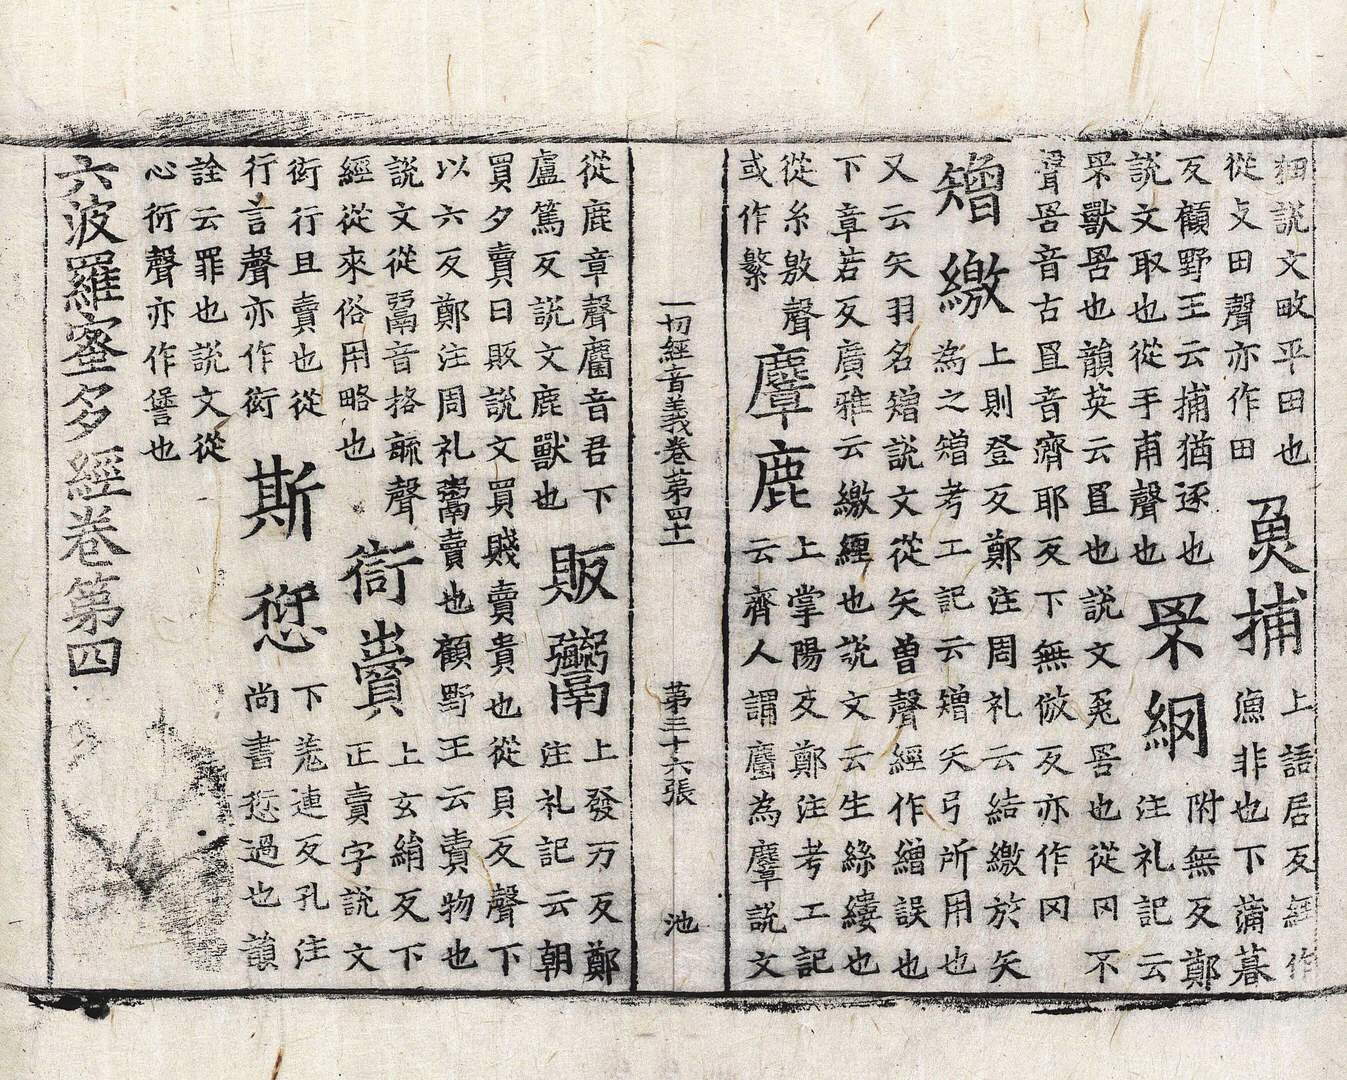 説文畋平田也
從攴田聲亦作田
捕
上語居反經作
漁非也下蒲暮
反顧野王云捕猶逐也
説文取也從手甫聲也
罘網
附無反鄭
注礼記云
罘獸罟也韻英云罝也説文兎罟也從冈不
聲罟音古罝音濟耶反下無倣反亦作冈
矰繳
上則登反鄭注周礼云結繳於矢
為之矰考工記云矰矢弓所用也
又云矢羽名矰説文從矢曽聲經作繒誤也
下章若反廣雅云繳纏也説文云生絲縷也
從糸敫聲
或作繁
麞鹿
上掌陽反鄭注考工記
云齊人謂麕為麞説文
一切經音義卷第四十一 第三十六張 池
從鹿章聲麕音君下
盧篤反説文鹿獸也
販鬻
上發万反鄭
注礼記云朝
買夕賣曰販説文買賤賣貴也從貝反聲下
以六反鄭注周礼鬻賣也顧野王云賣物也
説文從䰜音格毓聲
經從來俗用略也
衒賣
上玄絹反下
正賣字説文
衒行且賣也從
行言聲亦作衒
斯愆
下羗連反孔注
尚書愆過也韻
詮云罪也説文從
心衍聲亦作諐也
六波羅蜜多經卷第四